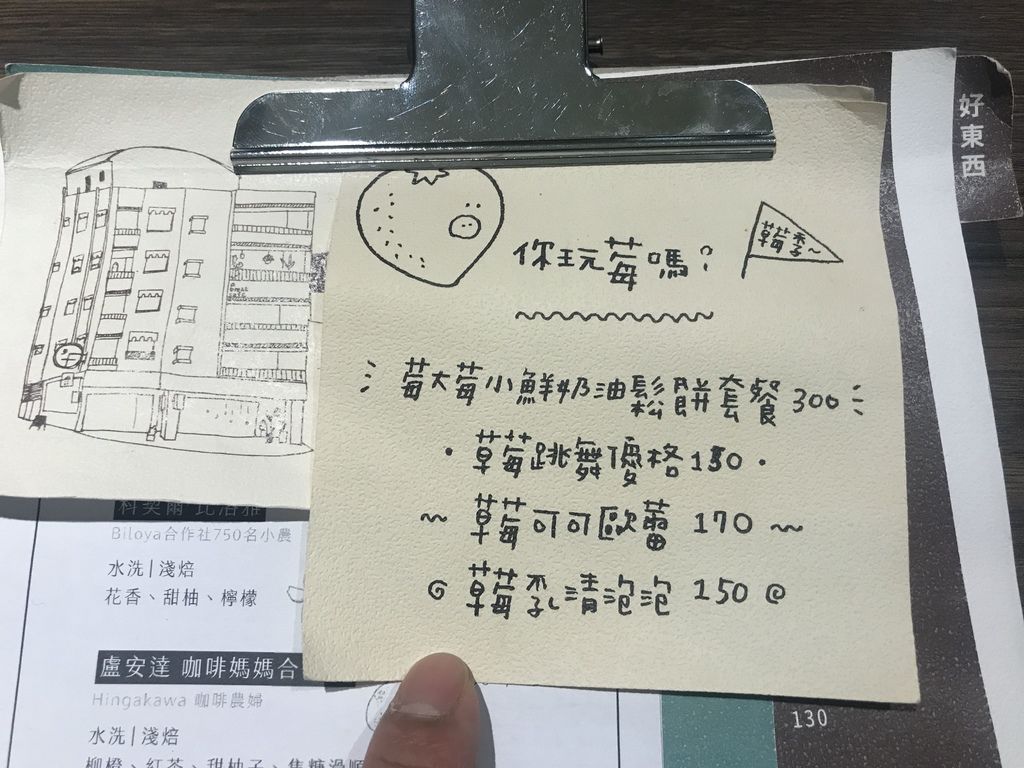 好東西
你玩莓嗎?
草莓季~
莓大莓小鮮奶油鬆餅套餐 300
・草莓跳舞優格 130・
~ 草莓可可歐蕾 170 ~
草莓乃清泡泡 150
Biloya合作社750名小農
水洗|淺焙
花香、甜柚、檸檬
盧安達 咖啡媽媽合
Hingakawa 咖啡農婦
水洗|淺焙
柳橙、紅茶、甜柚子、焦糖滑順
130